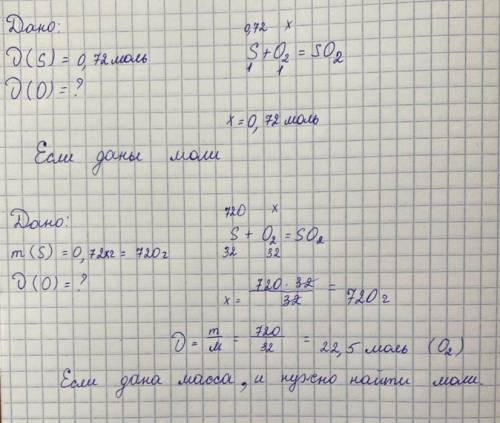 Дано:
0,72 x
ν(S) = 0,72 моль
S + O₂ = SO₂
1 1
ν(O) = ?
x = 0,72 моль
Если даны моли
Дано:
720 x
m(S) = 0,72кг = 720г
S + O₂ = SO₂
32 32
ν(O) = ?
x = 720 · 32 / 32 = 720г
ν = m/M = 720/32 = 22,5 моль (O₂)
Если дана масса, и нужно найти моли.